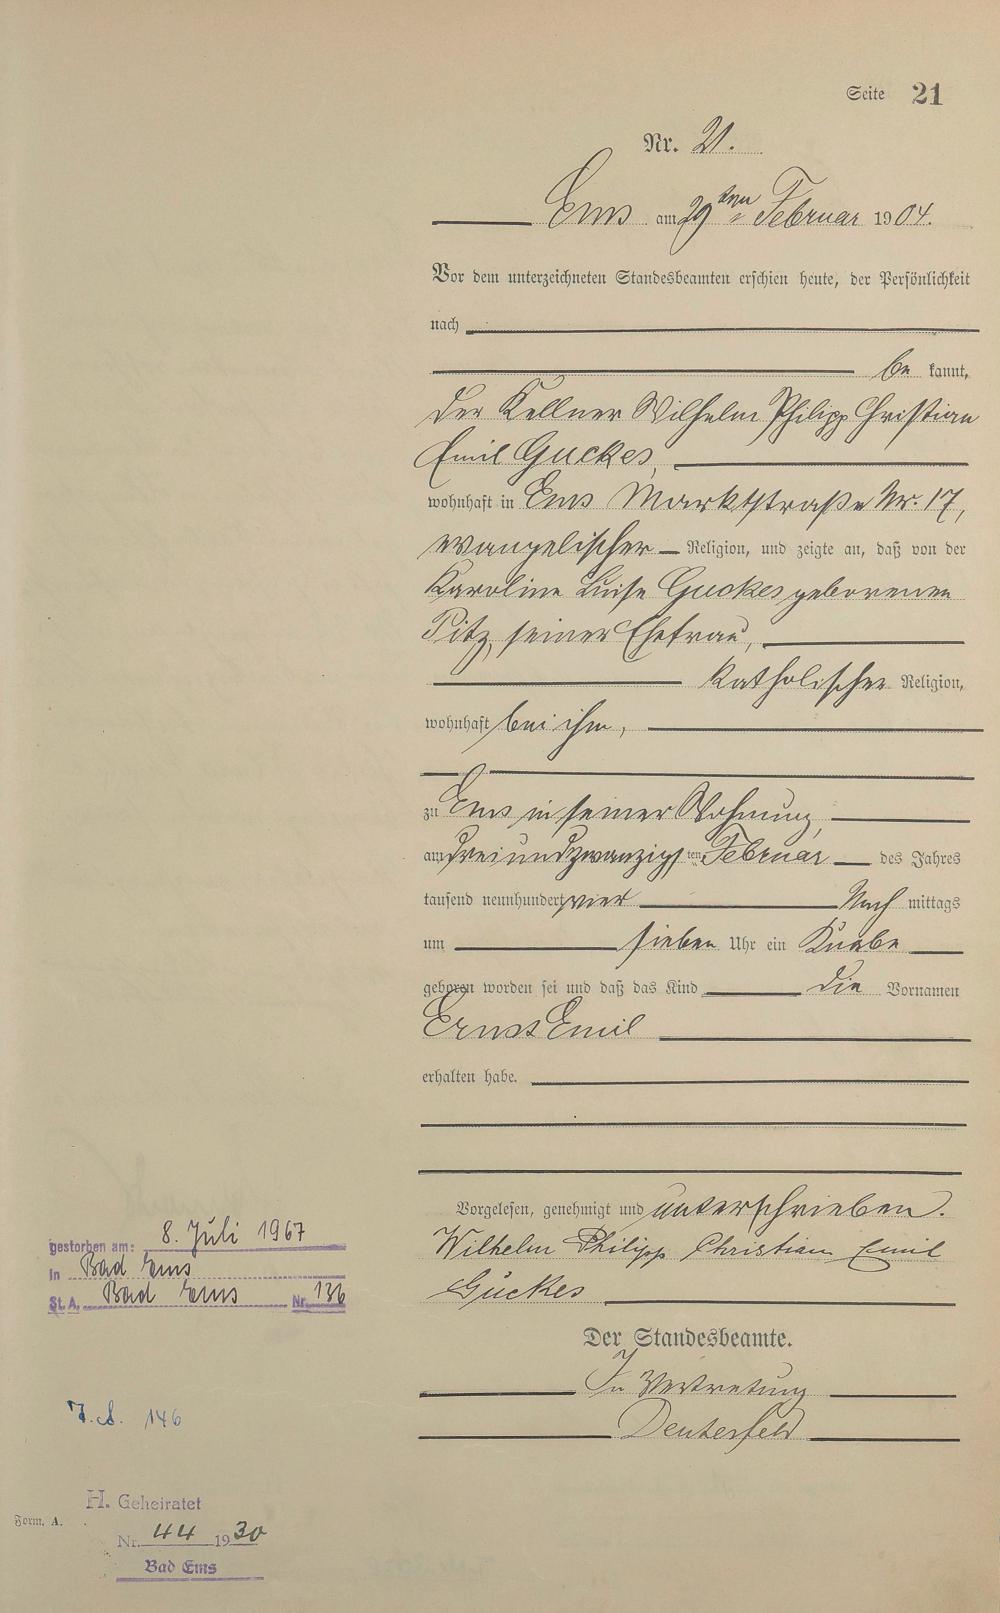 Seite 21
Nr. 21.
Ems am 29ten Februar 1904.
Vor dem unterzeichneten Standesbeamten erschien heute, der Persönlichkeit
nach
be kannt,
der Kellner Wilhelm Philipp Christian
Emil Guckes,
wohnhaft in Ems Marktstraße Nr. 17,
evangelischer Religion, und zeigte an, daß von der
Karoline Luise Guckes geborenen
Pitz, seiner Ehefrau,
katholischer Religion,
wohnhaft bei ihm,
zu Ems in seiner Wohnung,
am dreiundzwanzigsten Februar des Jahres
tausend neunhundert vier Nach mittags
um sieben Uhr ein Knabe
geboren worden sei und daß das Kind die Vornamen
Ernst Emil
erhalten habe.
Vorgelesen, genehmigt und unterschrieben.
Wilhelm Philipp Christian Emil
Guckes
Der Standesbeamte.
In Vertretung
Deuterfeld
gestorben am: 8. Juli 1967
in Bad Ems
St. A. Bad Ems Nr. 136
146
H. Geheiratet
Form. A.
Nr. 44 1930
Bad Ems